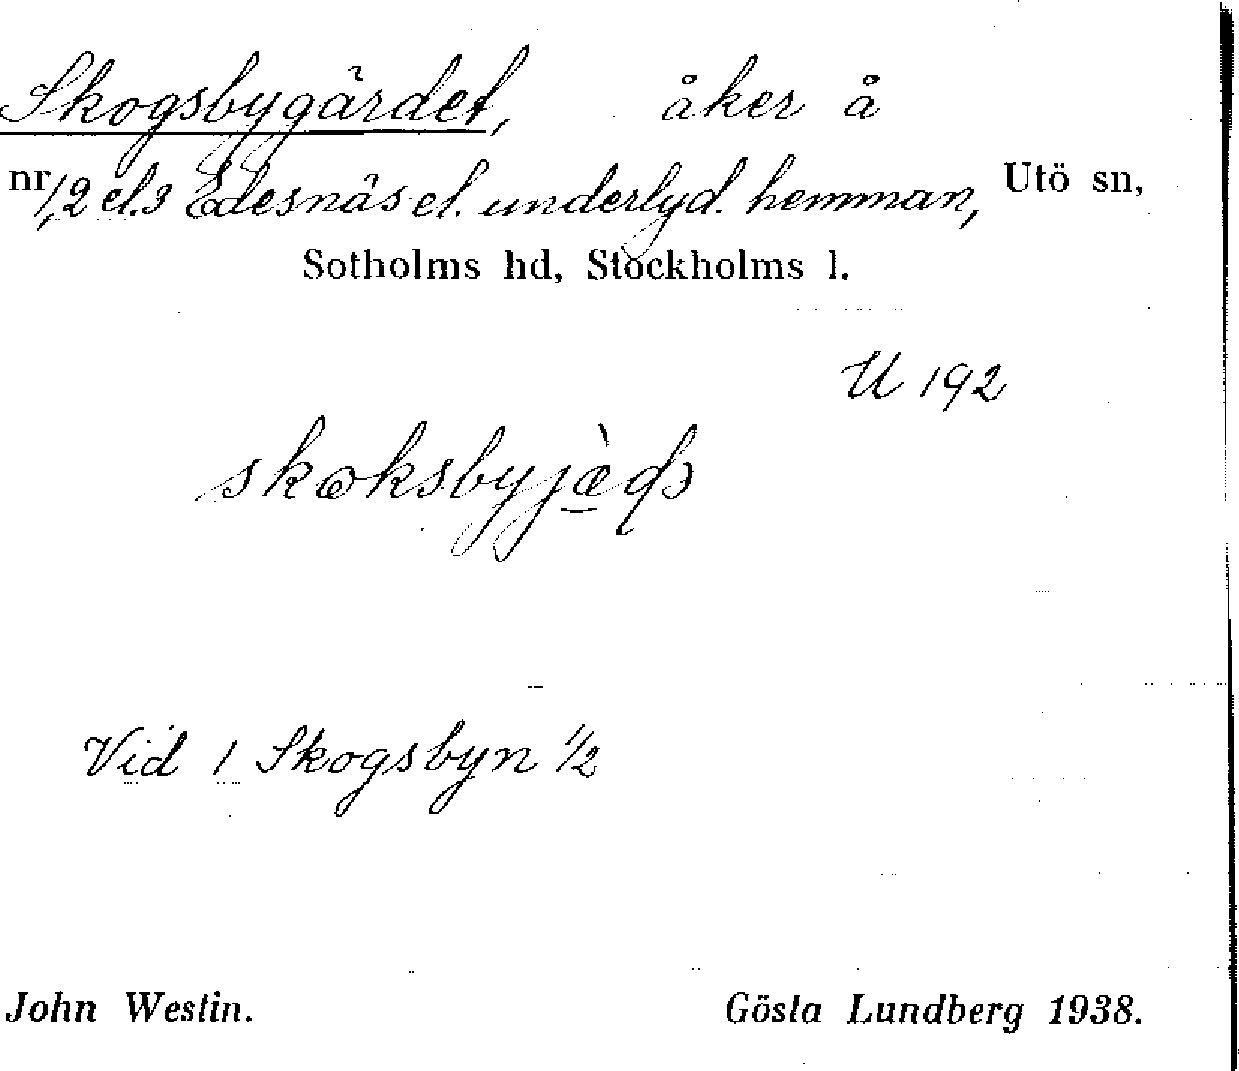 Skogsbygärdet, åker å
nr 1, 2 el. 3 Edesnäs el. underlyd. hemman, Utö sn,
Sotholms hd, Stockholms l.
U 192
Vid 1 Skogsbyn 1/2
John Westin. Gösta Lundberg 1938.